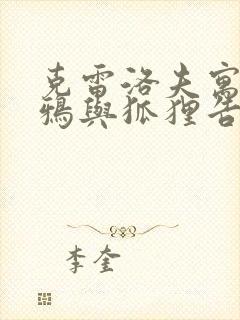 克雷洛夫寓
鴉與狐狸告
李奎